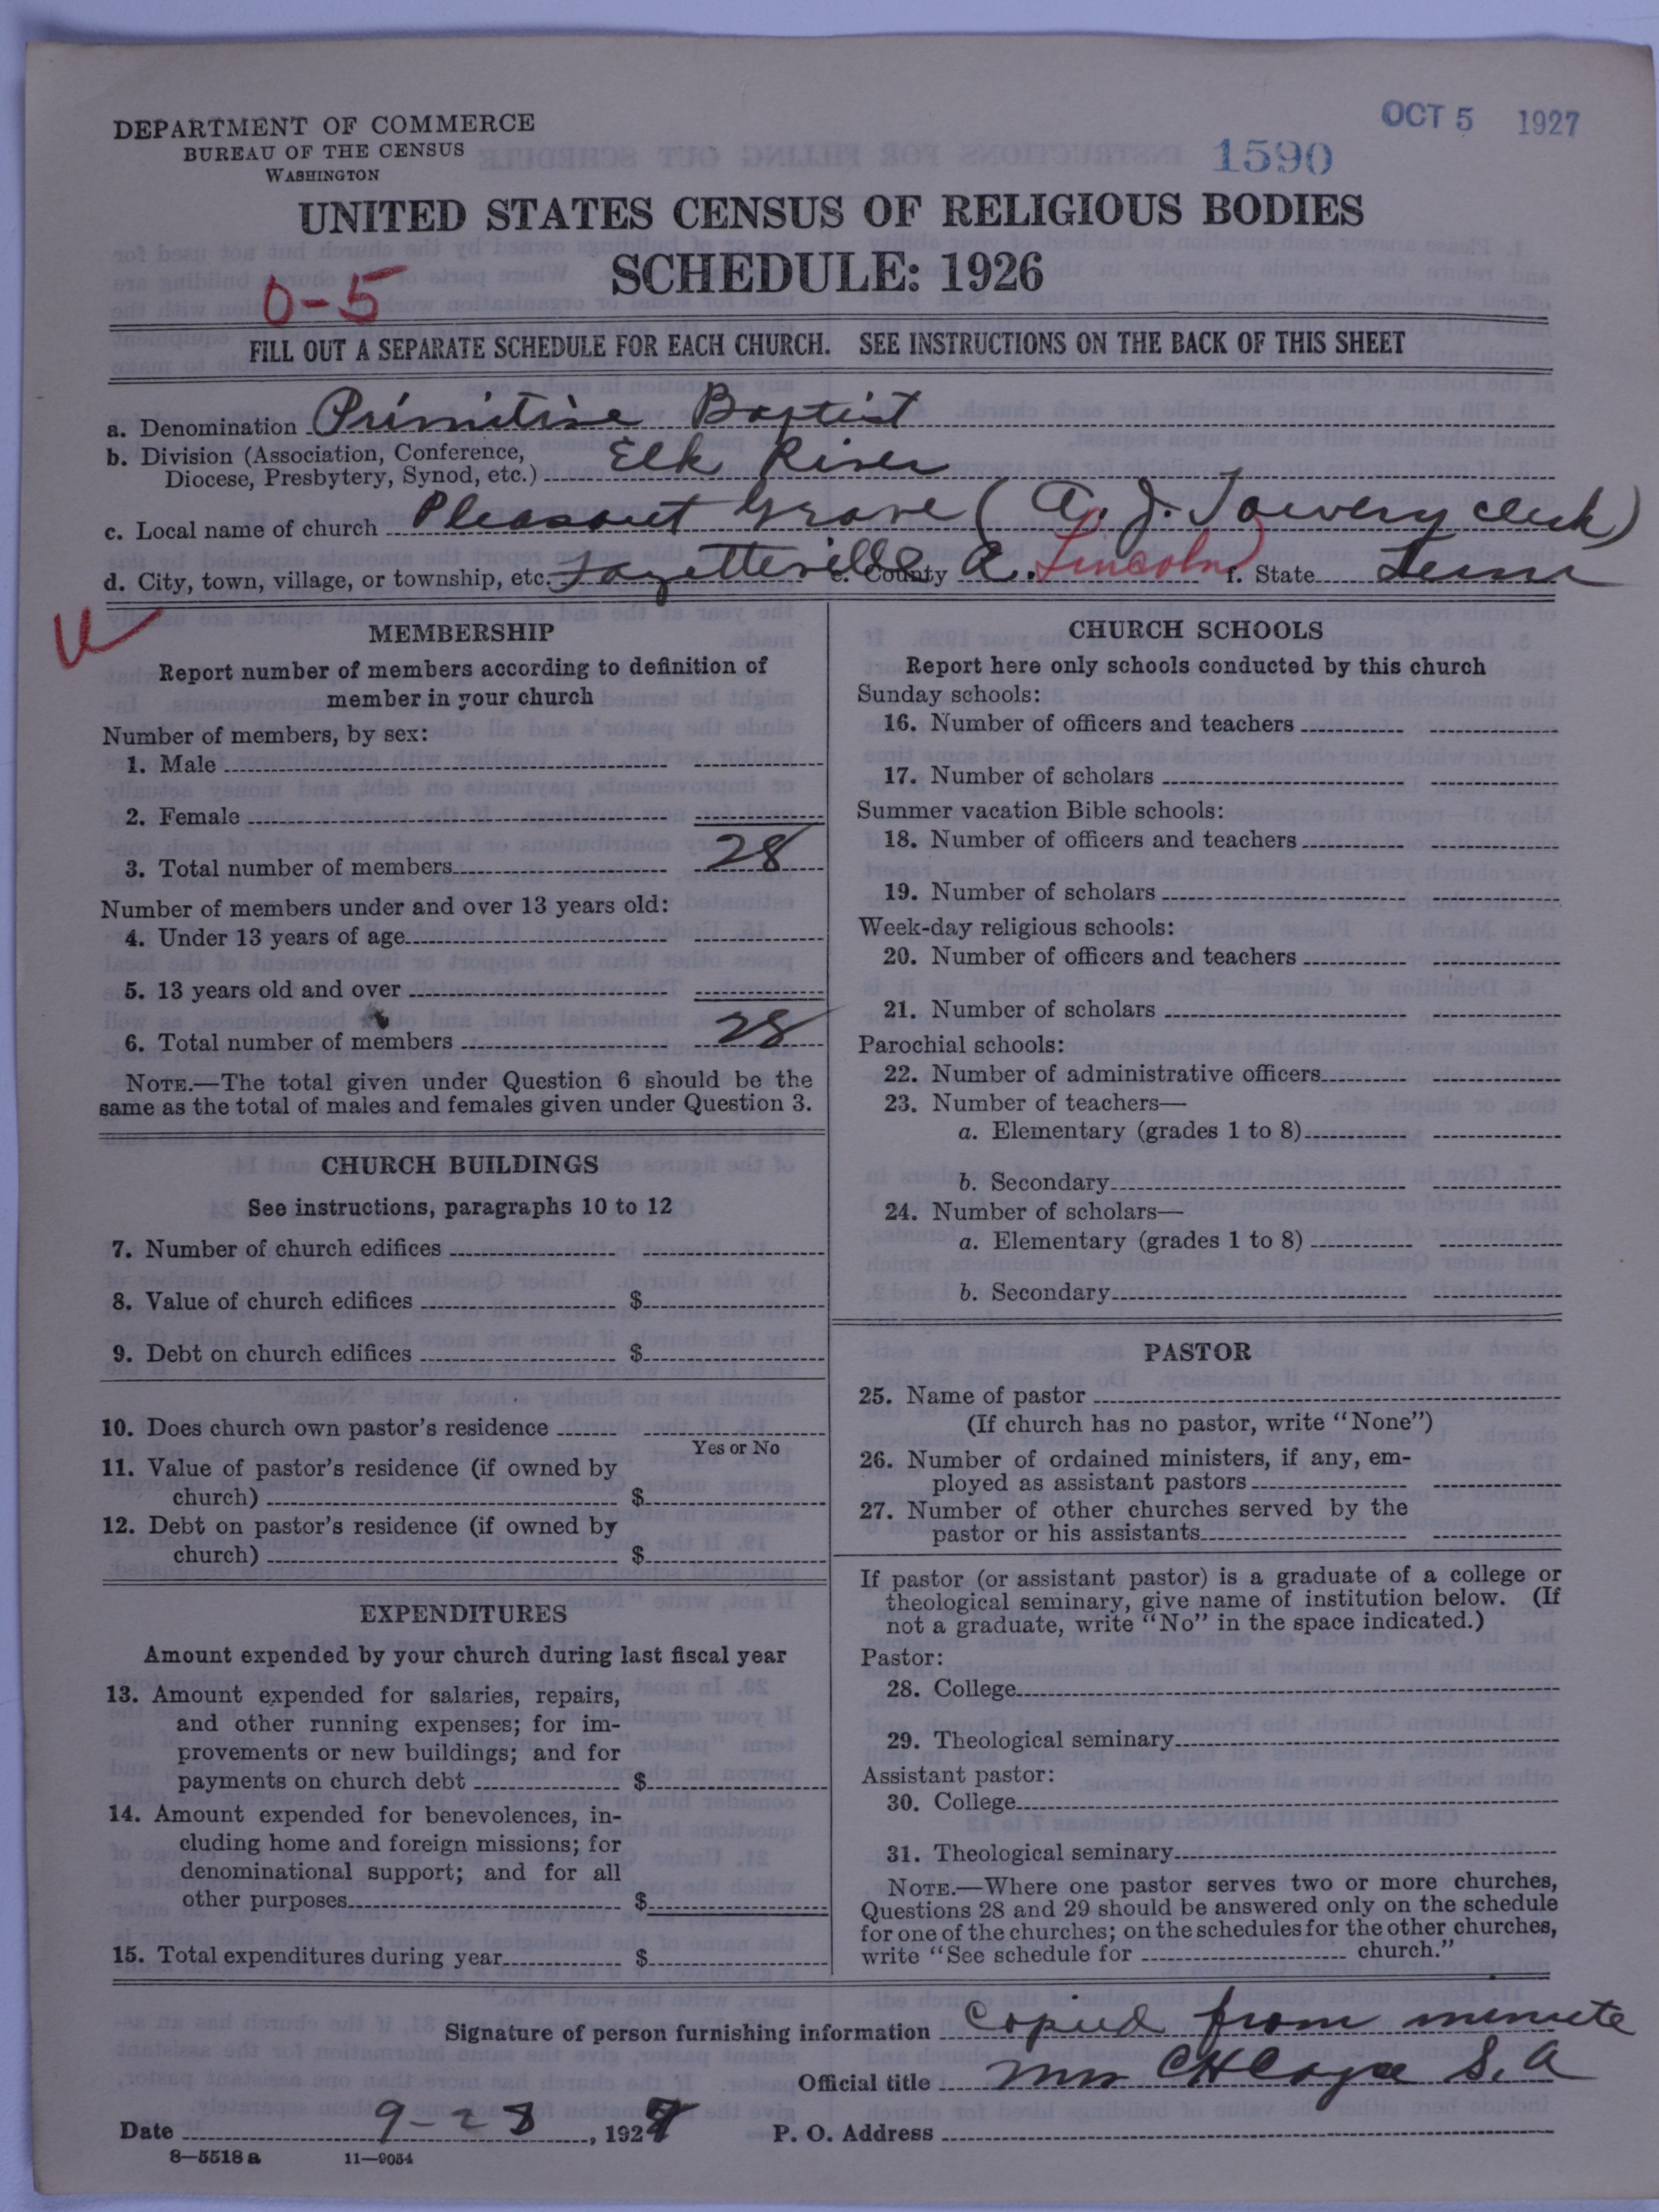 DEPARTMENT OF COMMERCE
BUREAU OF THE CENSUS
WASHINGTON
OCT 5 1927
1590
UNITED STATES CENSUS OF RELIGIOUS BODIES
SCHEDULE: 1926
0-5
FILL OUT A SEPARATE SCHEDULE FOR EACH CHURCH. SEE INSTRUCTIONS ON THE BACK OF THIS SHEET
a. Denomination Primitive Baptist
b. Division (Association, Conference, Diocese, Presbytery, Synod, etc.) Elk River
c. Local name of church Pleasant Grove (A. J. Towery clerk)
d. City, town, village, or township, etc. Fayetteville e. County Lincoln f. State Tenn
MEMBERSHIP
Report number of members according to definition of
member in your church
Number of members, by sex:
1. Male
2. Female
3. Total number of members 28
Number of members under and over 13 years old:
4. Under 13 years of age
5. 13 years old and over
6. Total number of members 28
NOTE.—The total given under Question 6 should be the
same as the total of males and females given under Question 3.
CHURCH BUILDINGS
See instructions, paragraphs 10 to 12
7. Number of church edifices
8. Value of church edifices $
9. Debt on church edifices $
10. Does church own pastor's residence
Yes or No
11. Value of pastor's residence (if owned by
church) $
12. Debt on pastor's residence (if owned by
church) $
EXPENDITURES
Amount expended by your church during last fiscal year
13. Amount expended for salaries, repairs,
and other running expenses; for im-
provements or new buildings; and for
payments on church debt $
14. Amount expended for benevolences, in-
cluding home and foreign missions; for
denominational support; and for all
other purposes $
15. Total expenditures during year $
CHURCH SCHOOLS
Report here only schools conducted by this church
Sunday schools:
16. Number of officers and teachers
17. Number of scholars
Summer vacation Bible schools:
18. Number of officers and teachers
19. Number of scholars
Week-day religious schools:
20. Number of officers and teachers
21. Number of scholars
Parochial schools:
22. Number of administrative officers
23. Number of teachers—
a. Elementary (grades 1 to 8)
b. Secondary
24. Number of scholars—
a. Elementary (grades 1 to 8)
b. Secondary
PASTOR
25. Name of pastor
(If church has no pastor, write "None")
26. Number of ordained ministers, if any, em-
ployed as assistant pastors
27. Number of other churches served by the
pastor or his assistants
If pastor (or assistant pastor) is a graduate of a college or
theological seminary, give name of institution below. (If
not a graduate, write "No" in the space indicated.)
Pastor:
28. College
29. Theological seminary
Assistant pastor:
30. College
31. Theological seminary
NOTE.—Where one pastor serves two or more churches,
Questions 28 and 29 should be answered only on the schedule
for one of the churches; on the schedules for the other churches,
write "See schedule for church."
Signature of person furnishing information Copied from minute
Official title Mrs S. A
Date 9-28, 1927 P. O. Address
8—5518 a 11—9054